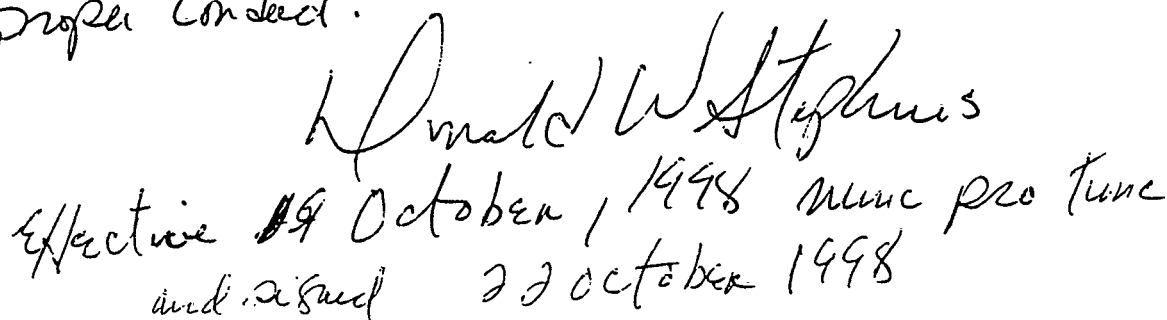 proper conduct.
Donald W Stephens
Effective 19 October, 1998 nunc pro tunc
and signed 22 October 1998